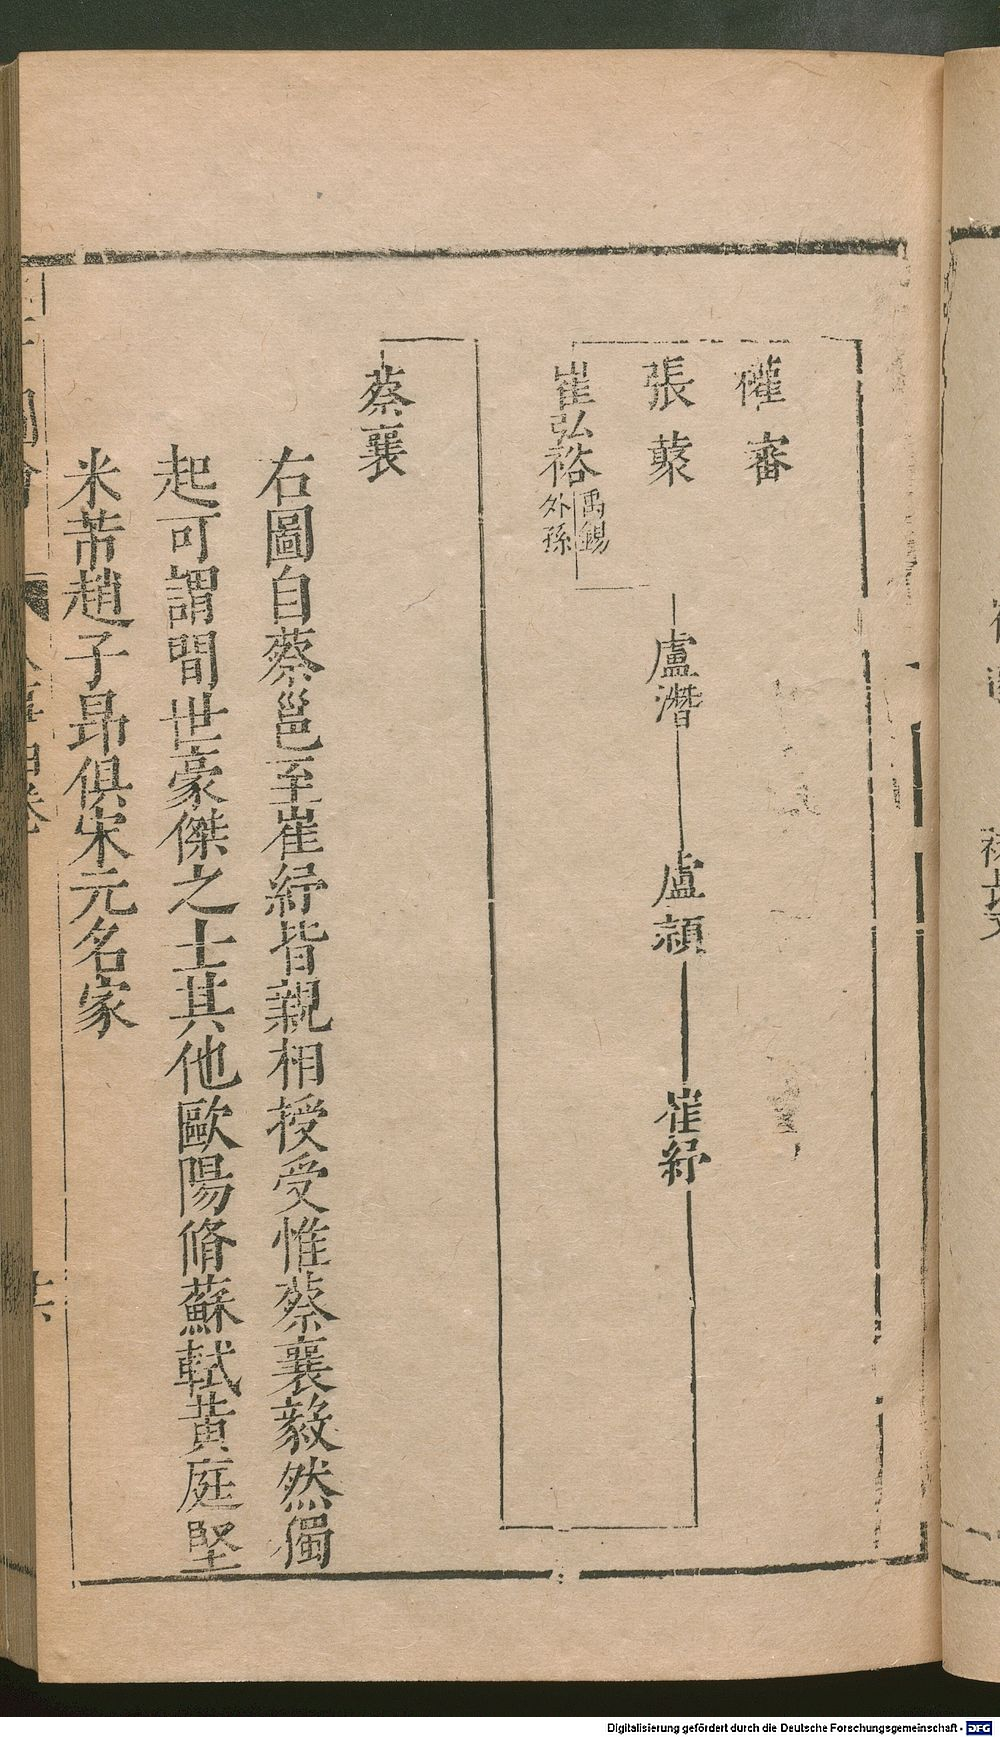 審
張彂
崔弘裕
禹錫
外孫
盧潛
盧潁
崔紓
蔡襄
右圖自蔡邕至崔紓皆親相授受惟蔡襄毅然獨
起可謂間世豪傑之士其他歐陽脩蘇軾黃庭堅
米芾趙子昂俱宋元名家
圖會
卷
Digitalisierung gefördert durch die Deutsche Forschungsgemeinschaft - DFG